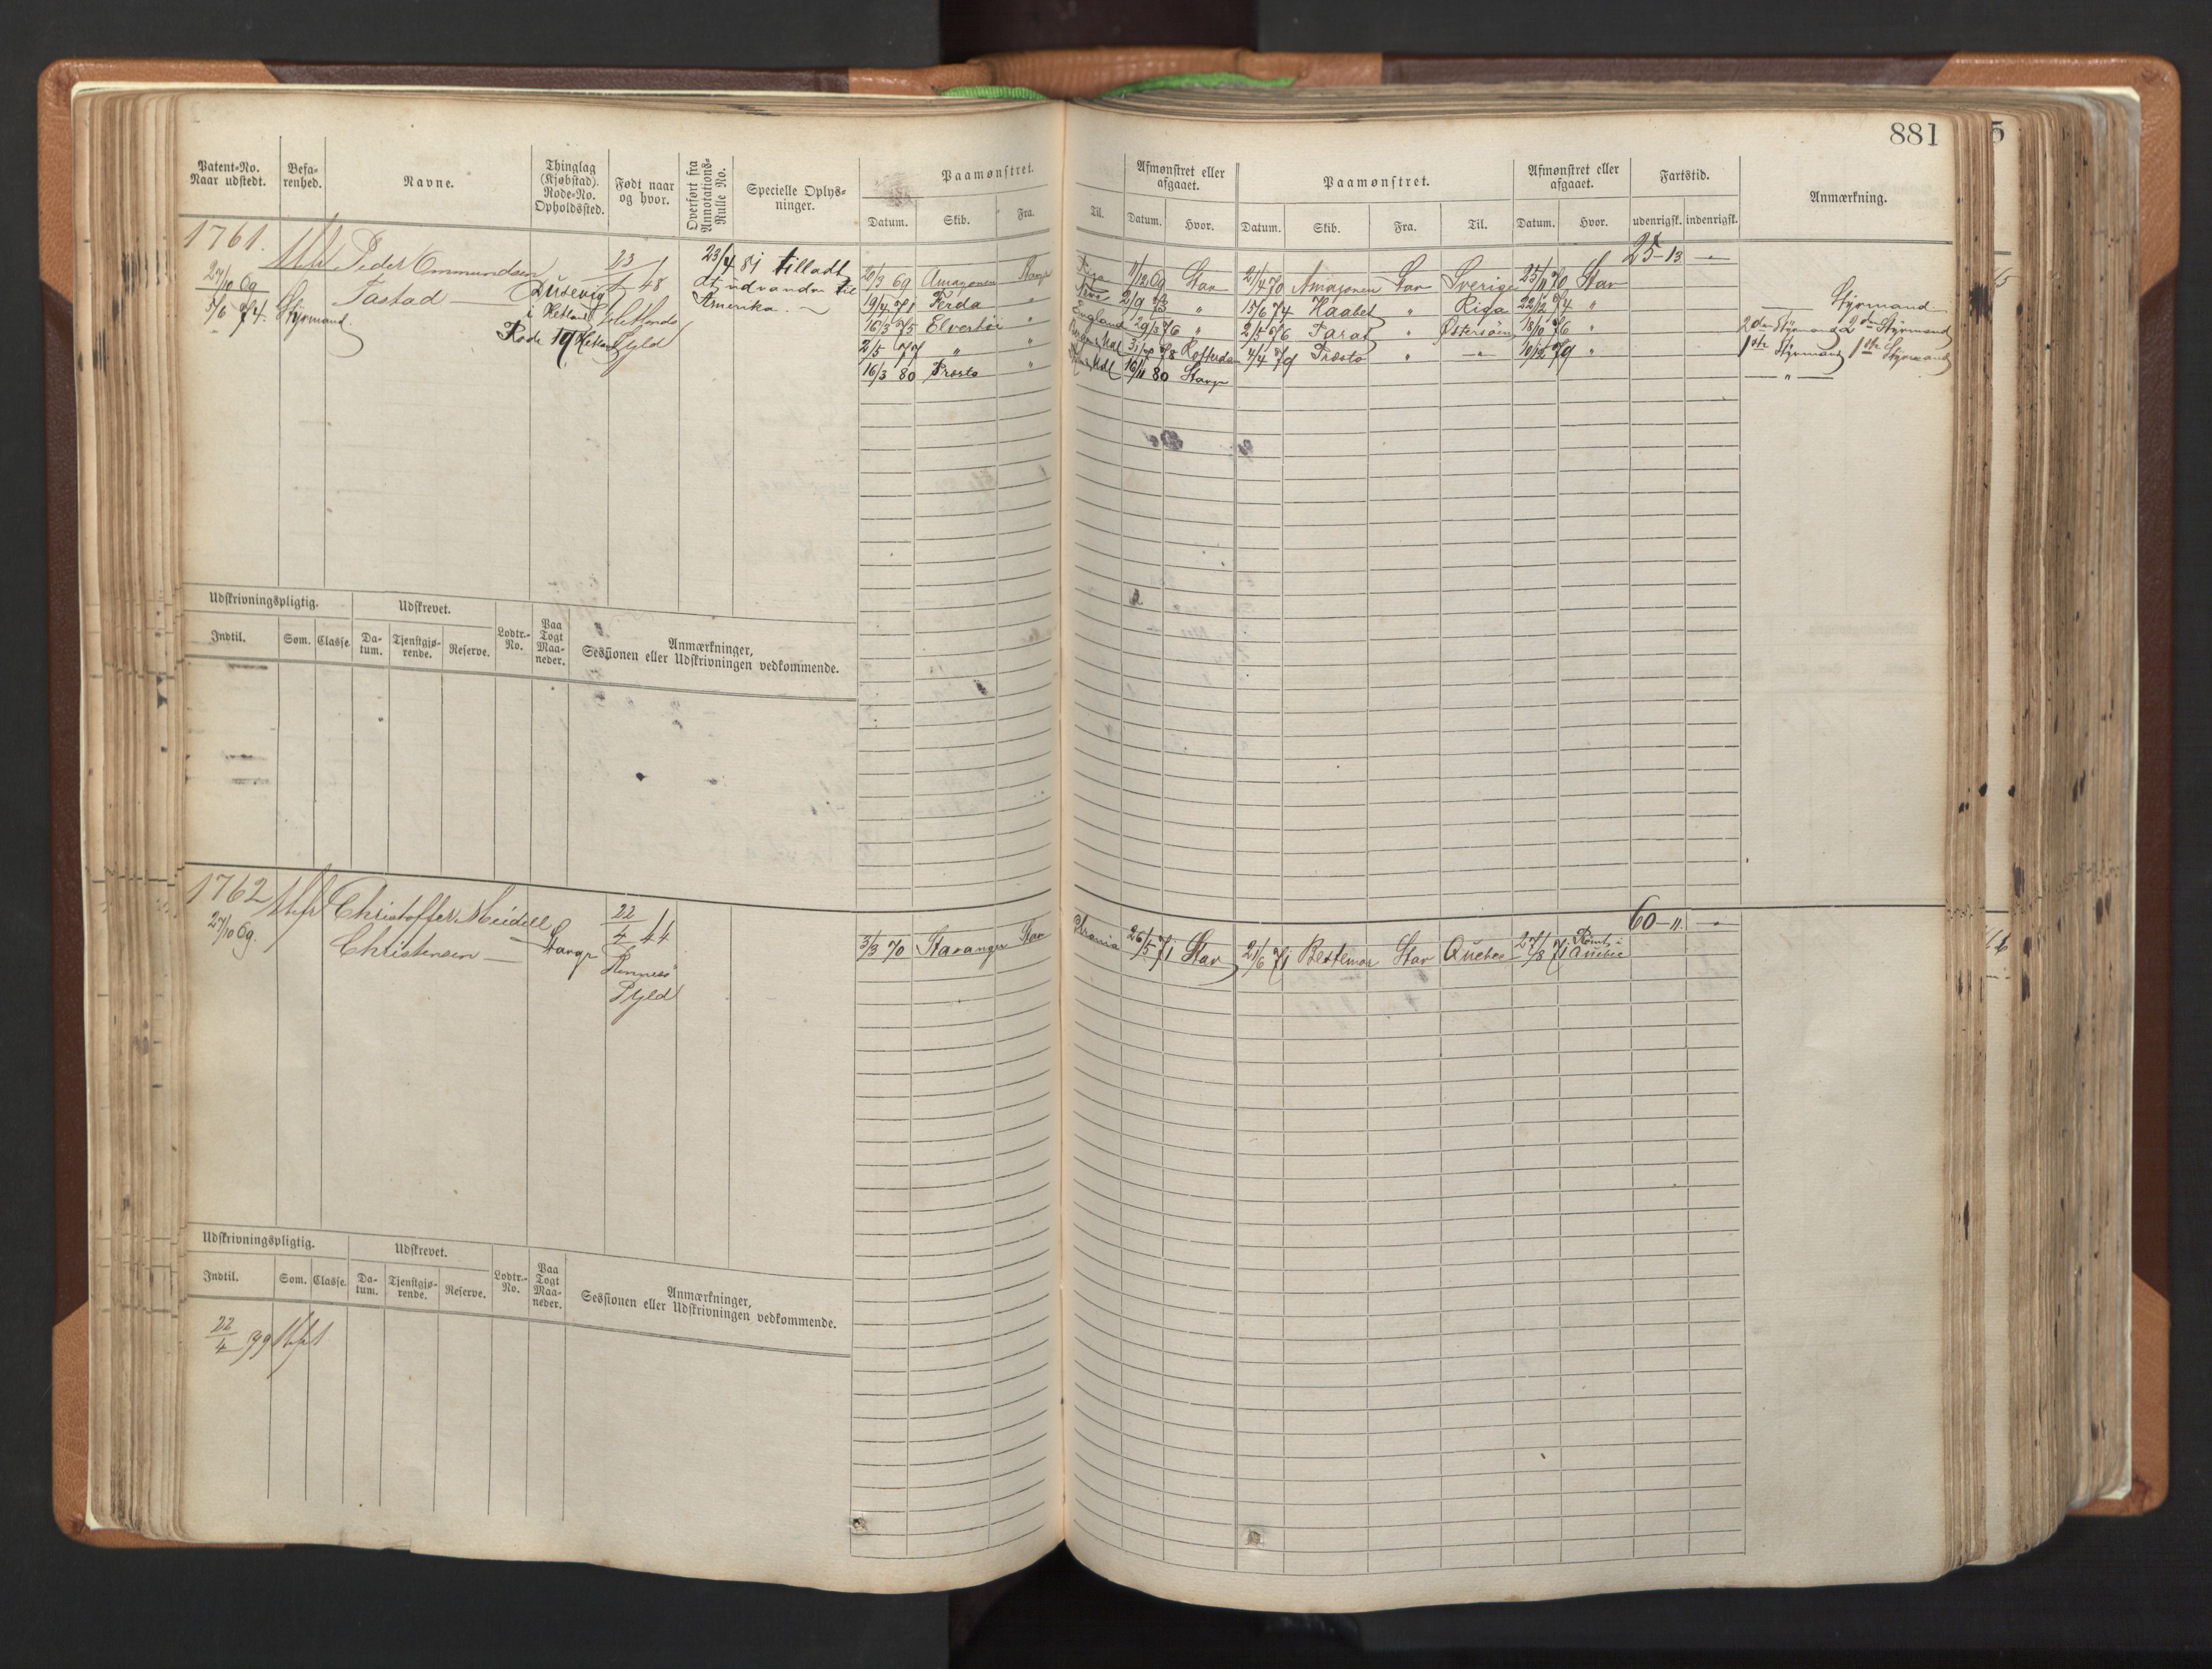 881
5
Patent-No. Naar udstedt.
Befa-renhed.
Navne.
Thinglag (Kjøbstad). Rode-No. Opholdssted.
Født naar og hvor.
Overført fra Annotations-Rulle No.
Specielle Oplys-ninger.
Paamønstret.
Datum. Skib. Fra. Til.
Afmønstret eller afgaaet.
Datum. Hvor.
Paamønstret.
Datum. Skib. Fra. Til.
Afmønstret eller afgaaet.
Datum. Hvor.
Fartstid.
udenrigsk. indenrigsk.
Anmærkning.
1761.
27/10 69
5/6 74. Styrmand.
Peder Ommundsen
Tastad
Dusevig
i Hetland
Rode 19 Hetland
23/1 48
Pgld
23/4 81 tilladt
at udvandre til
Amerika.
25-13
20/3 69 Amazonen Stavgr Riga 11/12 69 Stav 21/4 70 Amazonen Stav Sverige 25/11 70 Stav
19/4 71 Ferda " 2/9 73 " 15/6 74 Haabet " Riga 22/12 74 " Styrmand
16/3 75 Elverhöi " England 29/3 76 " 2/5 76 Parat " Østersøen 18/10 76 " 2den Styrmand 2den Styrmand
2/5 77 " " 31/7 78 Rotterdam 4/4 79 Præsto " 10/12 79 " 1ste Styrmand 1ste Styrmand
16/3 80 Præsto " 16/11 80 Stavgr "
Udskrivningspligtig.
Indtil. Som. Classe.
Udskrevet.
Da-tum. Tjenstgjø-rende. Reserve.
Lodtr.-No.
Paa Togt Maa-neder.
Anmærkninger,
Sessionen eller Udskrivningen vedkommende.
1762
27/10 69.
Christoffer Meidell
Christensen
Stavgr
22/4 44
Rennesø
Pgld
60-11
3/3 70 Stavanger Stav 26/5 71 Stav 21/6 71 Bestemor Stav Quebec 27/8 71 Rømt i Quebec
Udskrivningspligtig.
Indtil. Som. Classe.
Udskrevet.
Da-tum. Tjenstgjø-rende. Reserve.
Lodtr.-No.
Paa Togt Maa-neder.
Anmærkninger,
Sessionen eller Udskrivningen vedkommende.
22/4 79